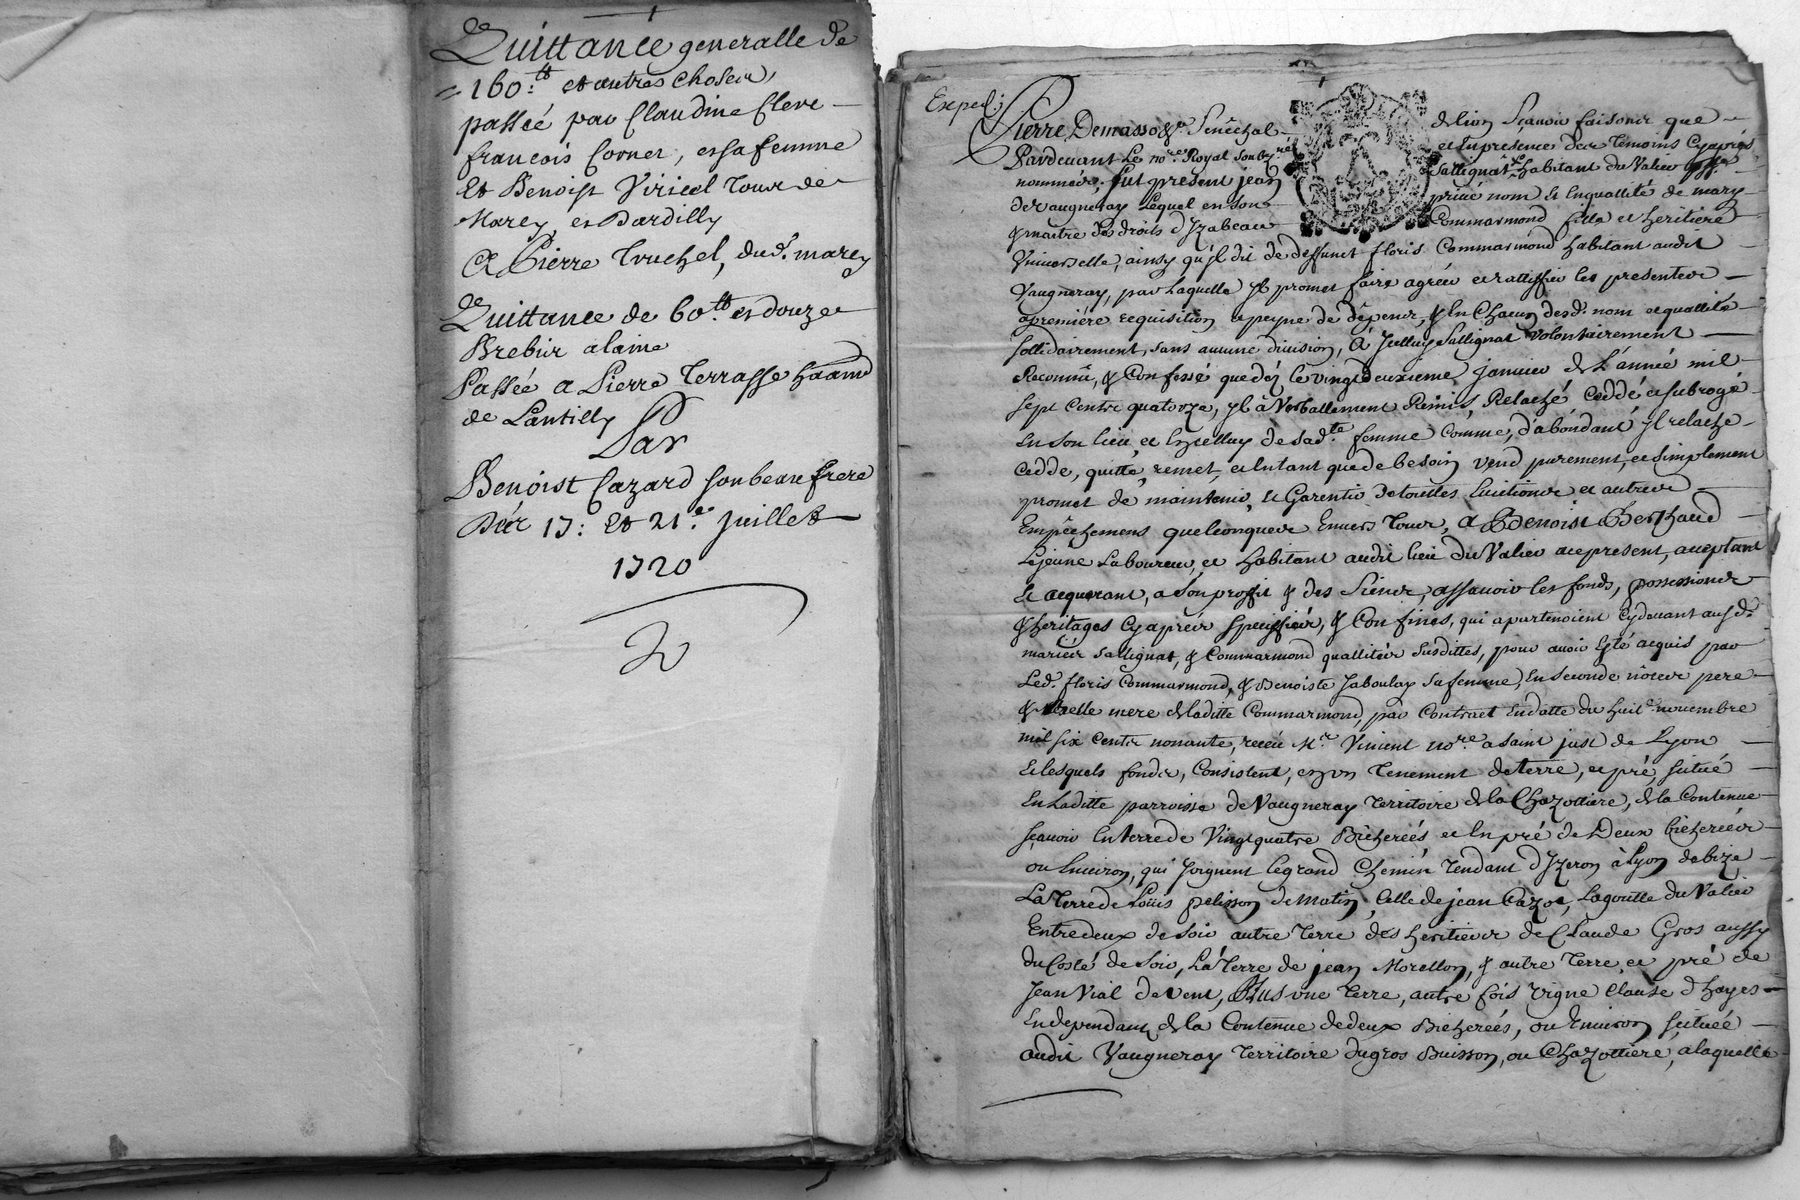 Quittance generalle de
160:tt et autres choses,
passée par Claudine Clerc
francois Cornet, et sa femme
Et Benoist Viricel tous de
Marcy, et Dardilly
A Pierre Truchet, dud.t marcy
Quittance de 60tt et douze
Brebis a laine
Passée a Pierre Terrasse
de Lantilly
Par
Benoist Cazard son beau frere
Des 17: Et 21.e juillet
1720
Exped.
Pierre Demasso Sr. Sénéchal de lion sçavoir faisons que
Pardevant Le no.re Royal soubz.né et en presence des Temoins Cyaprés
nommés, fut present jean Sallignat habitant du Valier
de Vaugneray Lequel en son privé nom et en quallité de mary
& maitre des droits d'Izabeau Commarmond fille et heritiere
Universelle, ainsy qu'jl dit de deffunct floris Commarmond habitant audit
Vaugneray, par Laquelle jl promet faire agréer et rattiffier les presentes
a premiére requisition a peyne de dépens, & en Chacun desd. nom et quallité
sollidairement, sans aucune division, A jcelluy Sallignat volontairement
Reconnû, & Confessé que dés le vingt deuxieme janvier de L'année mil
sept Cents quatorze, jl a Verballement Remis, Relaché Ceddé et subrogé
En son lieu, et En celluy de sad.te femme Comme, d'abondant jl relache
Cedde, quitte, remet, et En tant que de besoin vend purement, et simplement
promet de maintenir, et Garentir de touttes Evictions et autres
Empêchemens quelconques Envers tous, a Benoist Berthaud
Lejeune Laboureur, et habitant audit lieu du Valier ace present, acceptant
Et acquerant, a son proffit & des Siens, assavoir les fonds, possessions
& heritages Cy apres speciffiés, & Confinés, qui apartenoient Cydevant ausd.
mariés Sallignat, & Commarmond quallités susdittes, pour avoir Esté acquis par
Led. floris Commarmond, & Benoiste Jaboulay sa femme, En seconde nôces pere
& belle mere de laditte Commarmond, par Contract En datte du huit.e novembre
mil six Cents nonante, receu M.e Vincent no.re a Saint just de Lyon
Et lesquels fonds, Consistent, en un Tenement de terre, et pré, situé
En Laditte parroisse de Vaugneray Territoire de la Chazottiere, de la Contenue
sçavoir En terre de Vingt quatre Bicherées et En pré de Deux bicherées
ou Environ, qui joignent le grand Chemin Tendant d'Izeron à Lyon de bize
La terre de Loüis pelisson de matin, Celle de jean Cazot, La goutte du Valier
Entredeux de soir autre terre des heritiers de Claude Gros aussy
du Costé de Soir, La terre de jean Morellon, & autre terre, et pré de
Jean Vial de vent, Plus une terre, autre fois Vigne Clause d'hayes
En dependant de la Contenue de deux Bicherées, ou Environ, scituée
audit Vaugneray Territoire du gros Buisson, ou Chazottiere, a laquelle